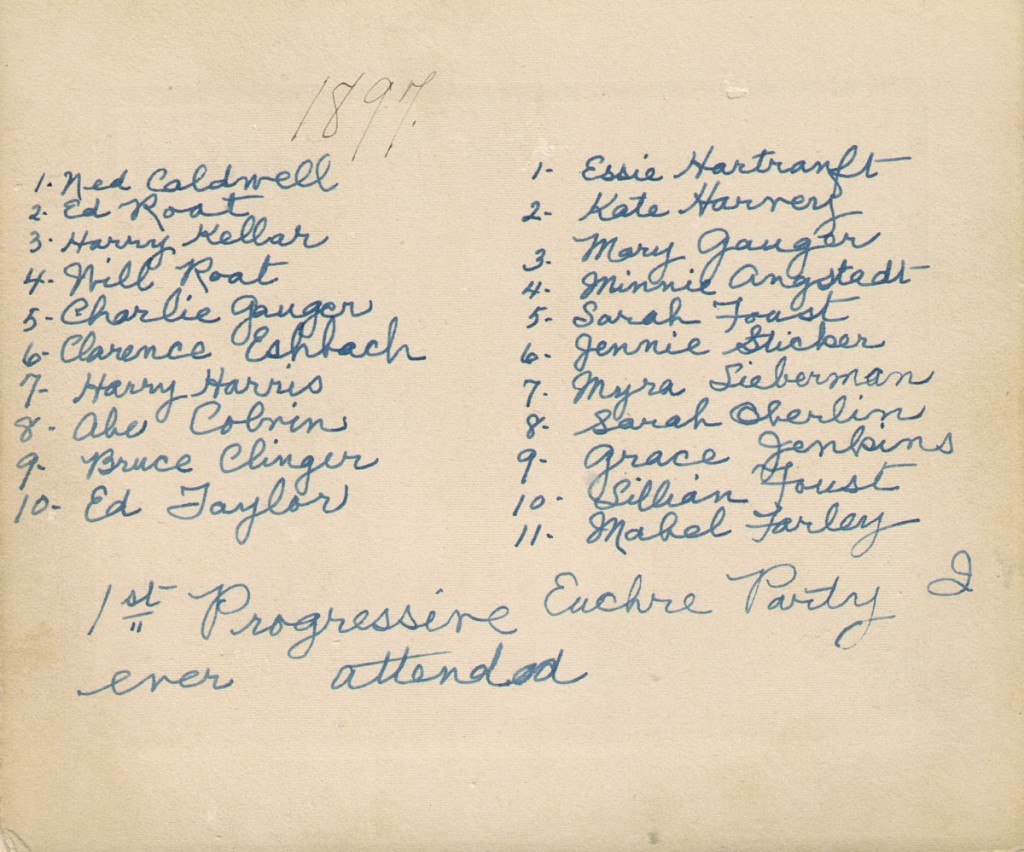 1897.
1. Ned Caldwell
2. Ed Roat
3. Harry Kellar
4. Will Roat
5- Charlie Gauger
6- Clarence Eshbach
7- Harry Harris
8- Abe Colvin
9- Bruce Clinger
10- Ed Taylor
1- Essie Hartranft
2- Kate Harvey
3. Mary Gauger
4. Minnie Angstadt
5- Sarah Foust
6. Jennie Sticker
7. Myra Lieberman
8- Sarah Oberlin
9- Grace Jenkins
10- Lillian Foust
11- Mabel Farley
1st Progressive Euchre Party I
ever attended